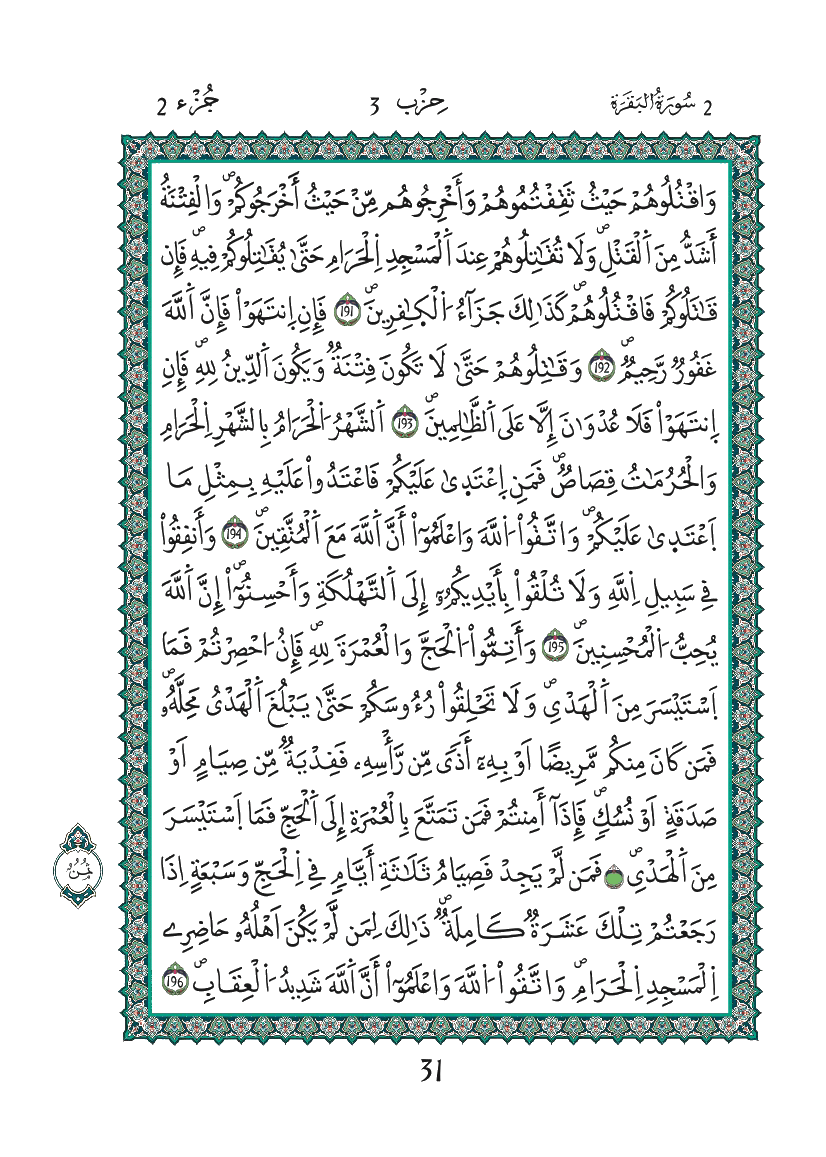 2 سُورَةُ الْبَقَرَةِ حِزْب 3 جُزْء 2
وَاقْتُلُوهُمْ حَيْثُ ثَقِفْتُمُوهُمْ وَأَخْرِجُوهُم مِّنْ حَيْثُ أَخْرَجُوكُمْۖ وَالْفِتْنَةُ
أَشَدُّ مِنَ اَلْقَتْلِۖ وَلَا تُقَٰتِلُوهُمْ عِندَ اَلْمَسْجِدِ اِلْحَرَامِ حَتَّىٰ يُقَٰتِلُوكُمْ فِيهِۖ فَإِن
قَٰتَلُوكُمْ فَاقْتُلُوهُمْۖ كَذَٰلِكَ جَزَآءُ اُلْكٰ۪فِرِينَۖ 191 فَإِنِ اِنتَهَوْاْ فَإِنَّ اَللَّهَ
غَفُورٌ رَّحِيمٌۖ 192 وَقَٰتِلُوهُمْ حَتَّىٰ لَا تَكُونَ فِتْنَةٌ وَيَكُونَ اَلدِّينُ لِلهِۖ فَإِنِ
اِنتَهَوْاْ فَلَا عُدْوَٰنَ إِلَّا عَلَى اَلظَّٰلِمِينَۖ 193 اَلشَّهْرُ اُلْحَرَامُ بِالشَّهْرِ اِلْحَرَامِ
وَالْحُرُمَٰتُ قِصَاصٌۖ فَمَنِ اِعْتَد۪ىٰ عَلَيْكُمْ فَاعْتَدُواْ عَلَيْهِ بِمِثْلِ مَا
اَعْتَد۪ىٰ عَلَيْكُمْۖ وَاتَّقُواْ اُللَّهَ وَاعْلَمُوٓاْ أَنَّ اَللَّهَ مَعَ اَلْمُتَّقِينَۖ 194 وَأَنفِقُواْ
فِے سَبِيلِ اِللَّهِ وَلَا تُلْقُواْ بِأَيْدِيكُمُۥٓ إِلَى اَلتَّهْلُكَةِ وَأَحْسِنُوٓاْۖ إِنَّ اَللَّهَ
يُحِبُّ اُلْمُحْسِنِينَۖ 195 وَأَتِمُّواْ اُلْحَجَّ وَالْعُمْرَةَ لِلهِۖ فَإِنُ ا۟حْصِرْتُمْ فَمَا
اَسْتَيْسَرَ مِنَ اَلْهَدْيِۖ وَلَا تَحْلِقُواْ رُءُوسَكُمْ حَتَّىٰ يَبْلُغَ اَلْهَدْيُ مَحِلَّهُۥۖ
فَمَن كَانَ مِنكُم مَّرِيضًا اَوْ بِهِۦٓ أَذًى مِّن رَّأْسِهِۦ فَفِدْيَةٌ مِّن صِيَامٍ اَوْ
صَدَقَةٍ اَوْ نُسُكٍۖ فَإِذَآ أَمِنتُمْ فَمَن تَمَتَّعَ بِالْعُمْرَةِ إِلَى اَلْحَجِّ فَمَا اَسْتَيْسَرَ
مِنَ اَلْهَدْيِۖ فَمَن لَّمْ يَجِدْ فَصِيَامُ ثَلَٰثَةِ أَيَّامٍ فِے اِلْحَجِّ وَسَبْعَةٍ اِذَا
رَجَعْتُمْ تِلْكَ عَشَرَةٌ كَامِلَةٌۖ ذَٰلِكَ لِمَن لَّمْ يَكُنَ اَهْلُهُۥ حَاضِرِے
اِلْمَسْجِدِ اِلْحَرَامِۖ وَاتَّقُواْ اُللَّهَ وَاعْلَمُوٓاْ أَنَّ اَللَّهَ شَدِيدُ اُلْعِقَابِۖ 196
ثُمُن
31